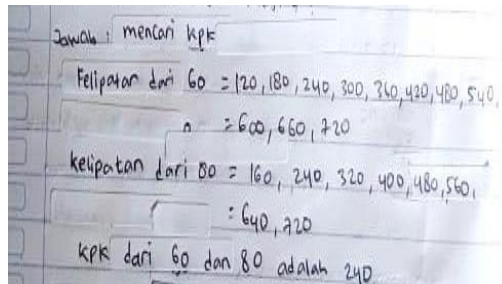 Jawab : mencari kpk
Kelipatan dari 60 = 120, 180, 240, 300, 360, 420, 480, 540,
= 600, 660, 720
kelipatan dari 80 = 160, 240, 320, 400, 480, 560,
= 640, 720
kpk dari 60 dan 80 adalah 240